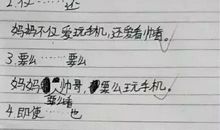 2.不仅……还
妈妈不仅爱玩手机,还爱看帅哥。
3.要么……要么
妈妈要么看帅哥,要么玩手机。
4.即使……也